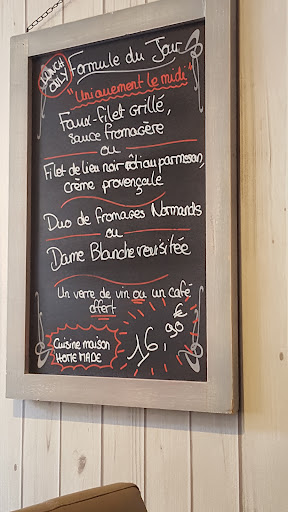 LUNCH
ONLY
Formule du Jour
"Uniquement le midi"
Faux-filet Grillé,
sauce fromagère
ou
Filet de lieu noir rôti au parmesan,
crème provençale
Duo de fromages Normands
ou
Dame Blanche revisitée
Un verre de vin ou un café
offert
Cuisine maison
Home MADE
16,90€